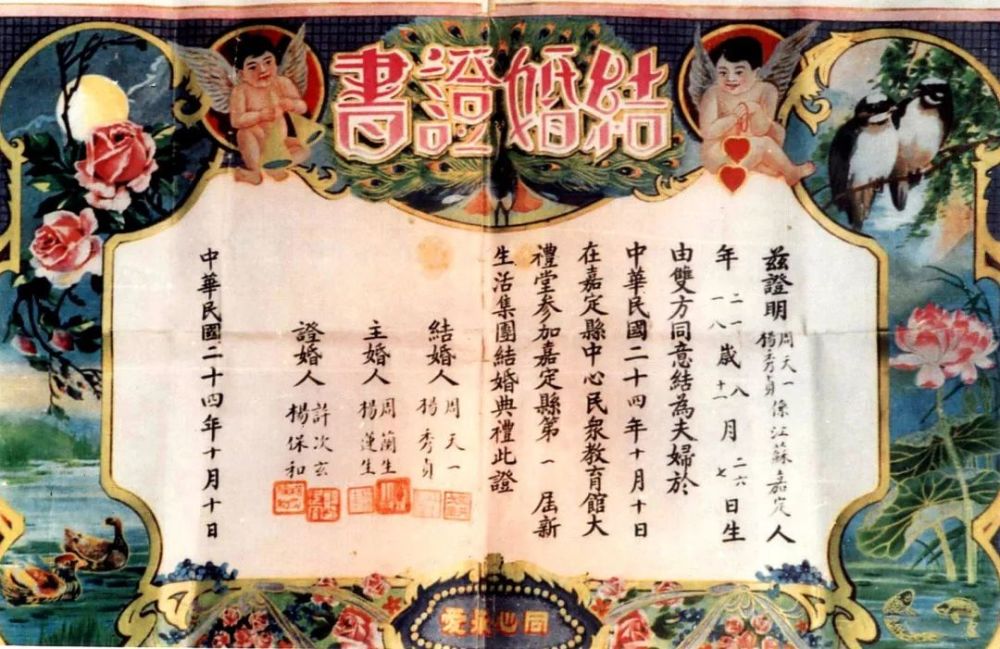 結婚證書
茲證明周天一楊秀貞係江蘇嘉定人
年二一一八歲八十一月二六七日生
由雙方同意結為夫婦於
中華民國二十四年十月十日
在嘉定縣中心民衆教育館大
禮堂參加嘉定縣第一屆新
生活集團結婚典禮此證
結婚人周天一楊秀貞
主婚人周蘭生楊蓮生
證婚人許次玄楊保和
中華民國二十四年十月十日
同心永愛